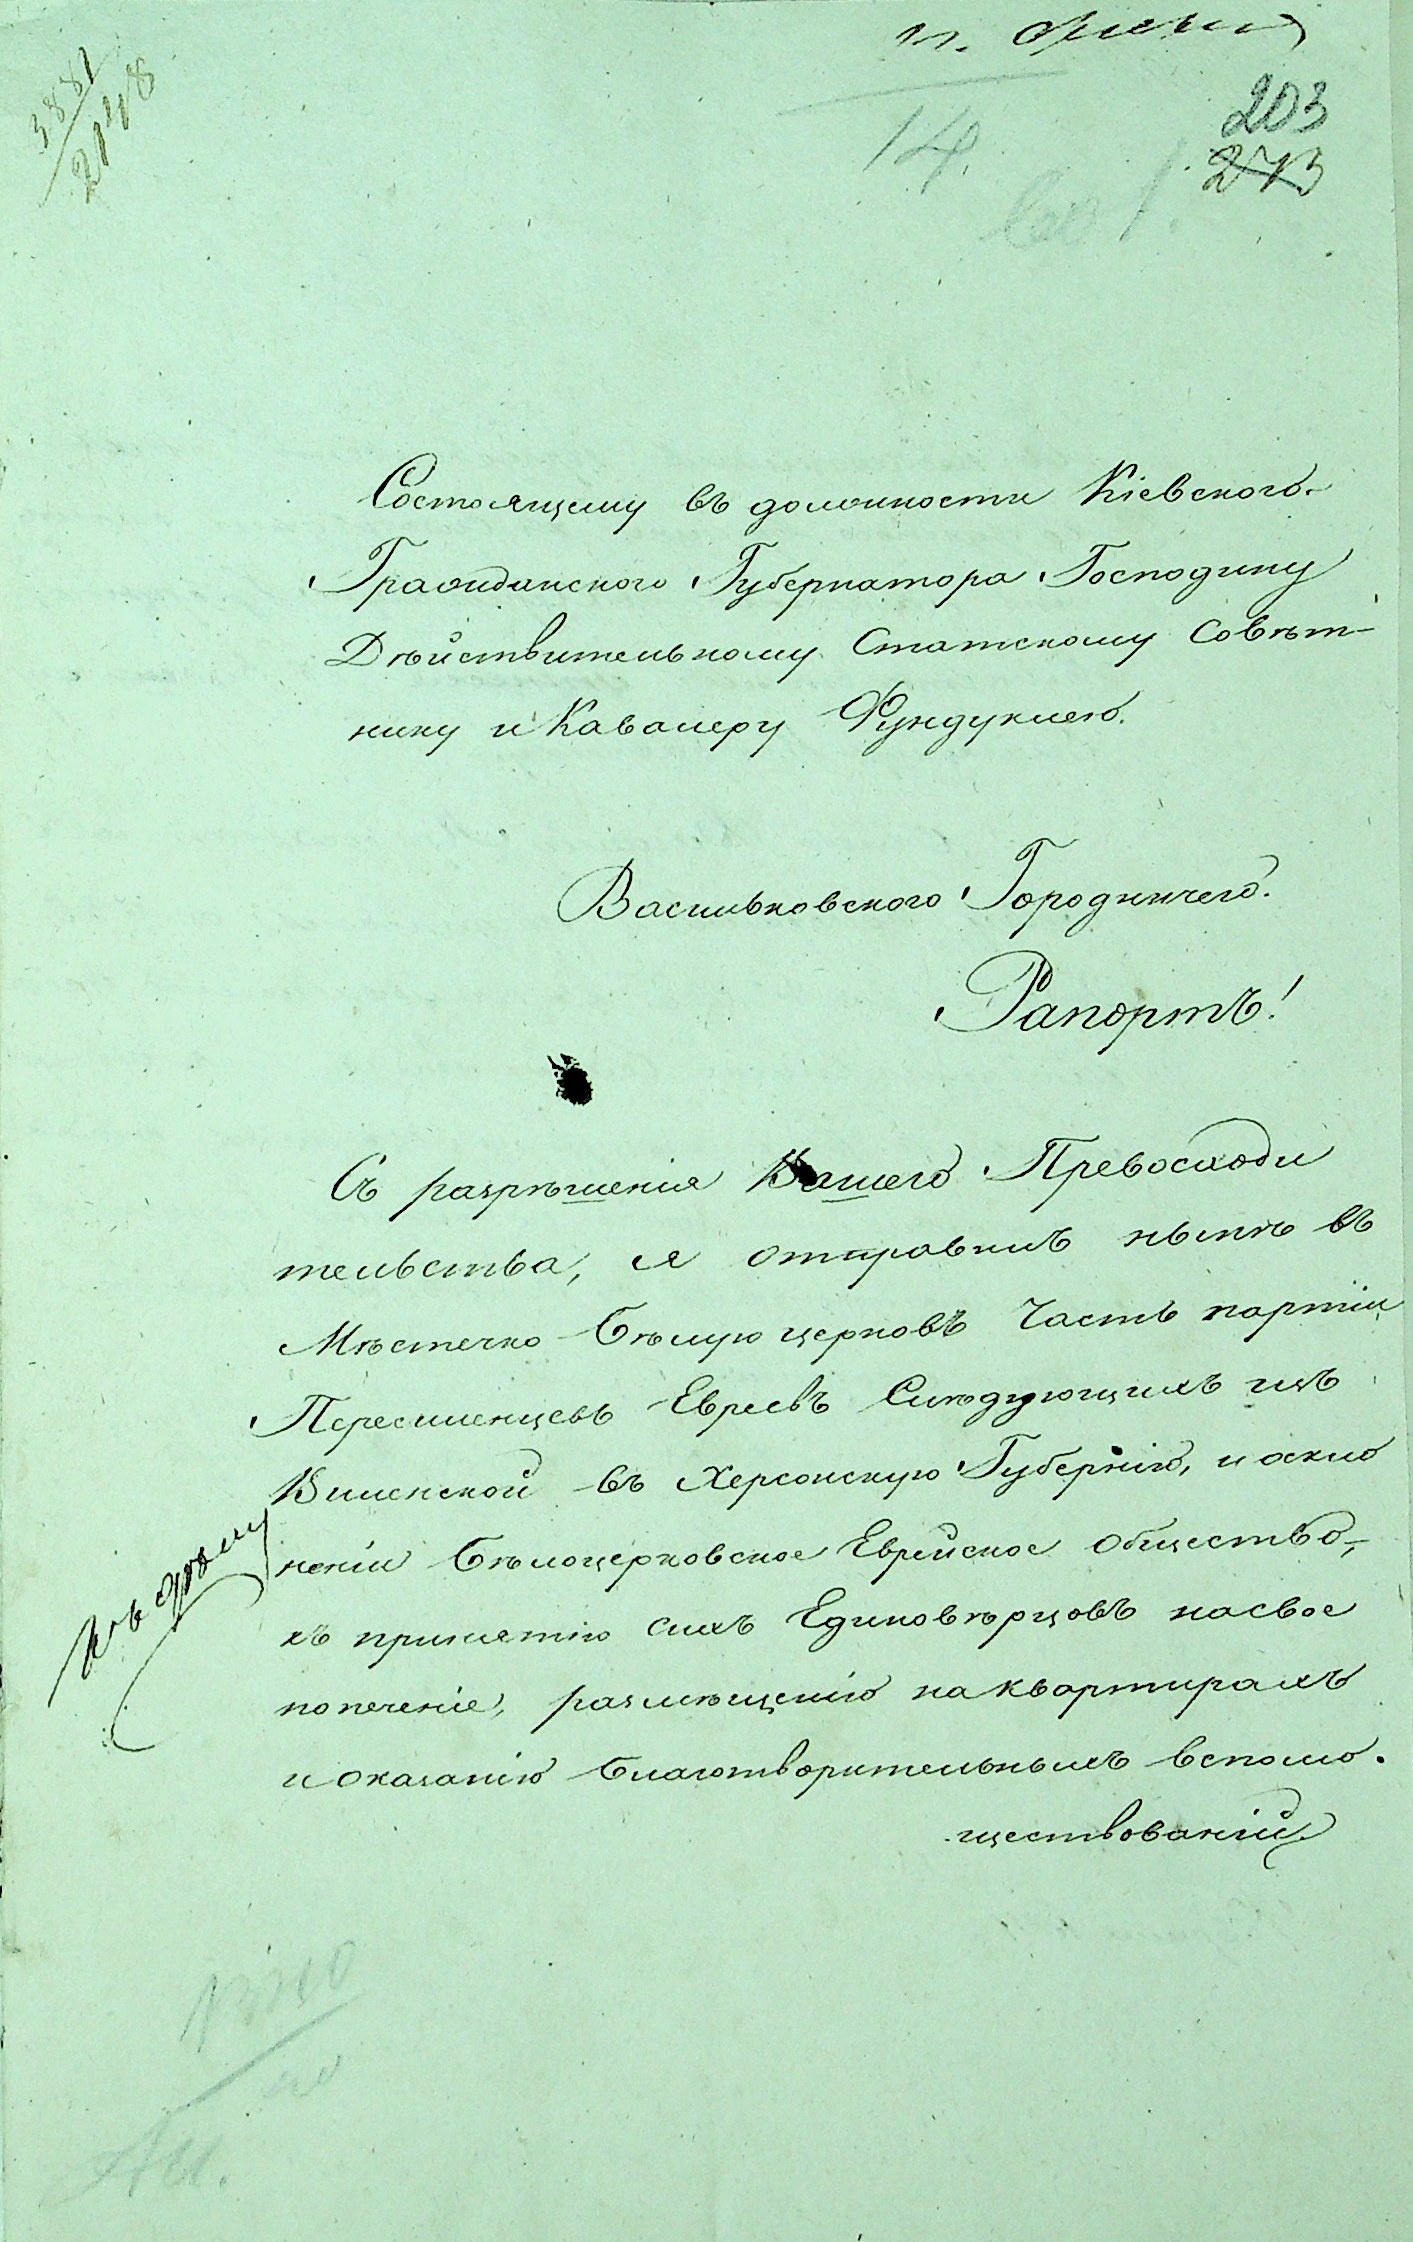 3881
2148
203
273
14.
Состоящему въ должности Кіевского
Гражданского Губернатора Господину
Дѣйствительному Статскому Совѣт-
нику и Кавалеру Фундуклею.
Васильковского Городничего.
Рапортъ!
Съ разрѣшенія Вашего Превосходи
тельства, я отправилъ нынѣ въ
Мѣстечко Бѣлую церковъ Часть партіи
Переселенцевъ Евреевъ Слѣдующихъ изъ
Виленской въ Херсонскую Губернію, и о скло
неніи Бѣлоцерковское Еврейское общество,
къ принятію сихъ Единовѣрцовъ на свое
попеченіе, размѣщенію на квартирахъ
и оказанію благотворительныхъ вспомо.
ществованій
Къ дѣлу